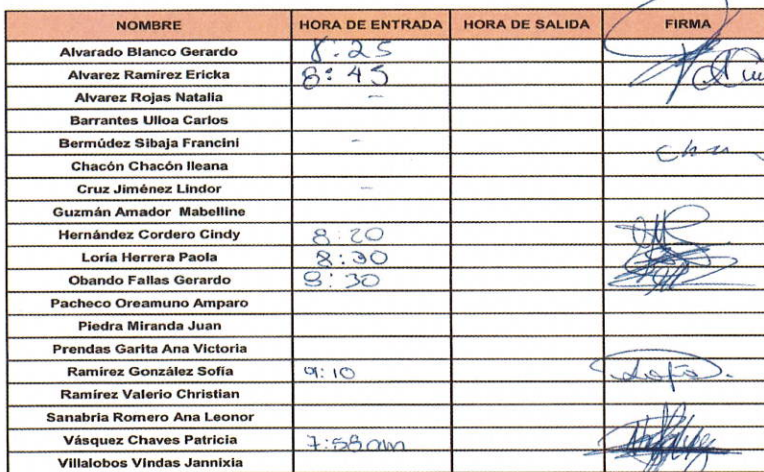 NOMBRE HORA DE ENTRADA HORA DE SALIDA FIRMA
Alvarado Blanco Gerardo 8:25
Alvarez Ramírez Ericka 8:45
Alvarez Rojas Natalia -
Barrantes Ulloa Carlos
Bermúdez Sibaja Francini -
Chacón Chacón Ileana
Cruz Jiménez Lindor -
Guzmán Amador Mabelline
Hernández Cordero Cindy 8:20
Loría Herrera Paola 8:30
Obando Fallas Gerardo 8:30
Pacheco Oreamuno Amparo
Piedra Miranda Juan
Prendas Garita Ana Victoria
Ramírez González Sofía 9:10 Sofía.
Ramírez Valerio Christian
Sanabria Romero Ana Leonor
Vásquez Chaves Patricia 7:58am
Villalobos Vindas Jannixia